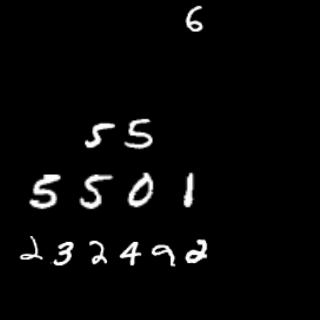 6
55
5501
232492